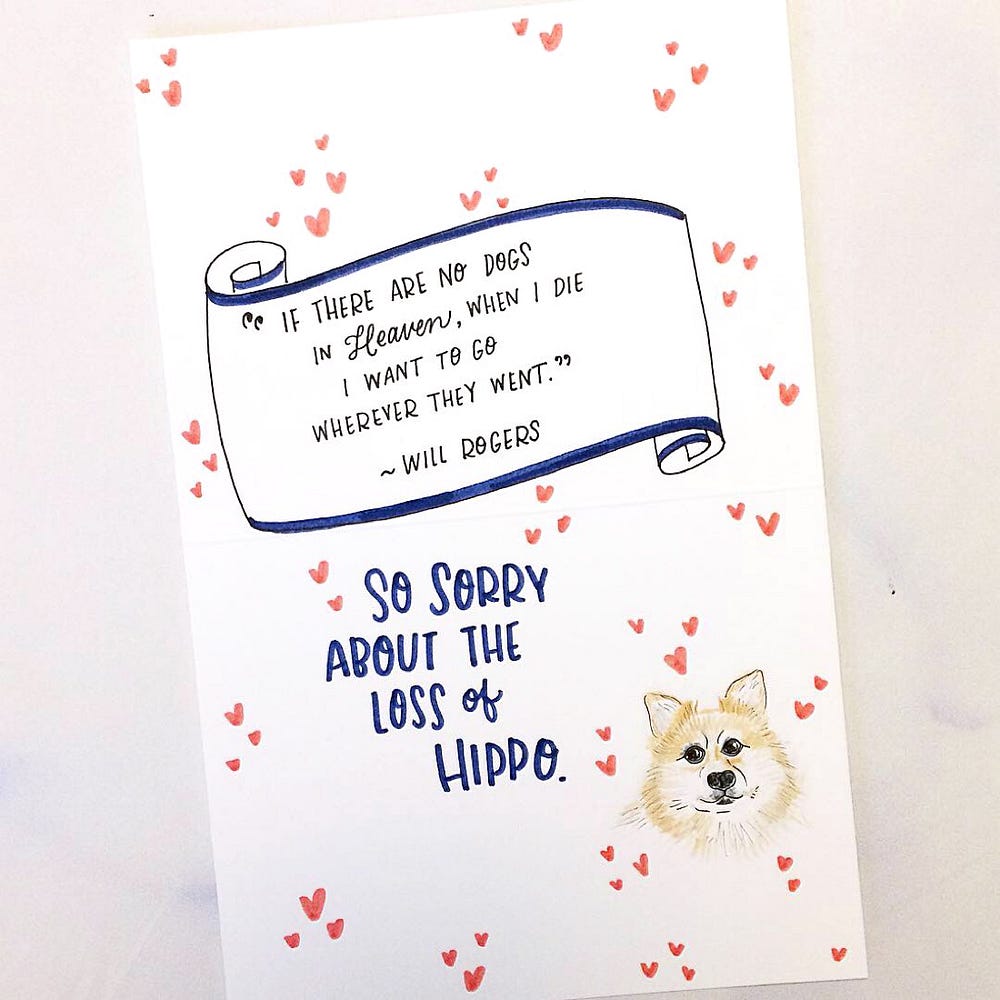 “ IF THERE ARE NO DOGS
IN Heaven, WHEN I DIE
I WANT TO GO
WHEREVER THEY WENT.”
~ WILL ROGERS
SO SORRY
ABOUT THE
LOSS of
HIPPO.